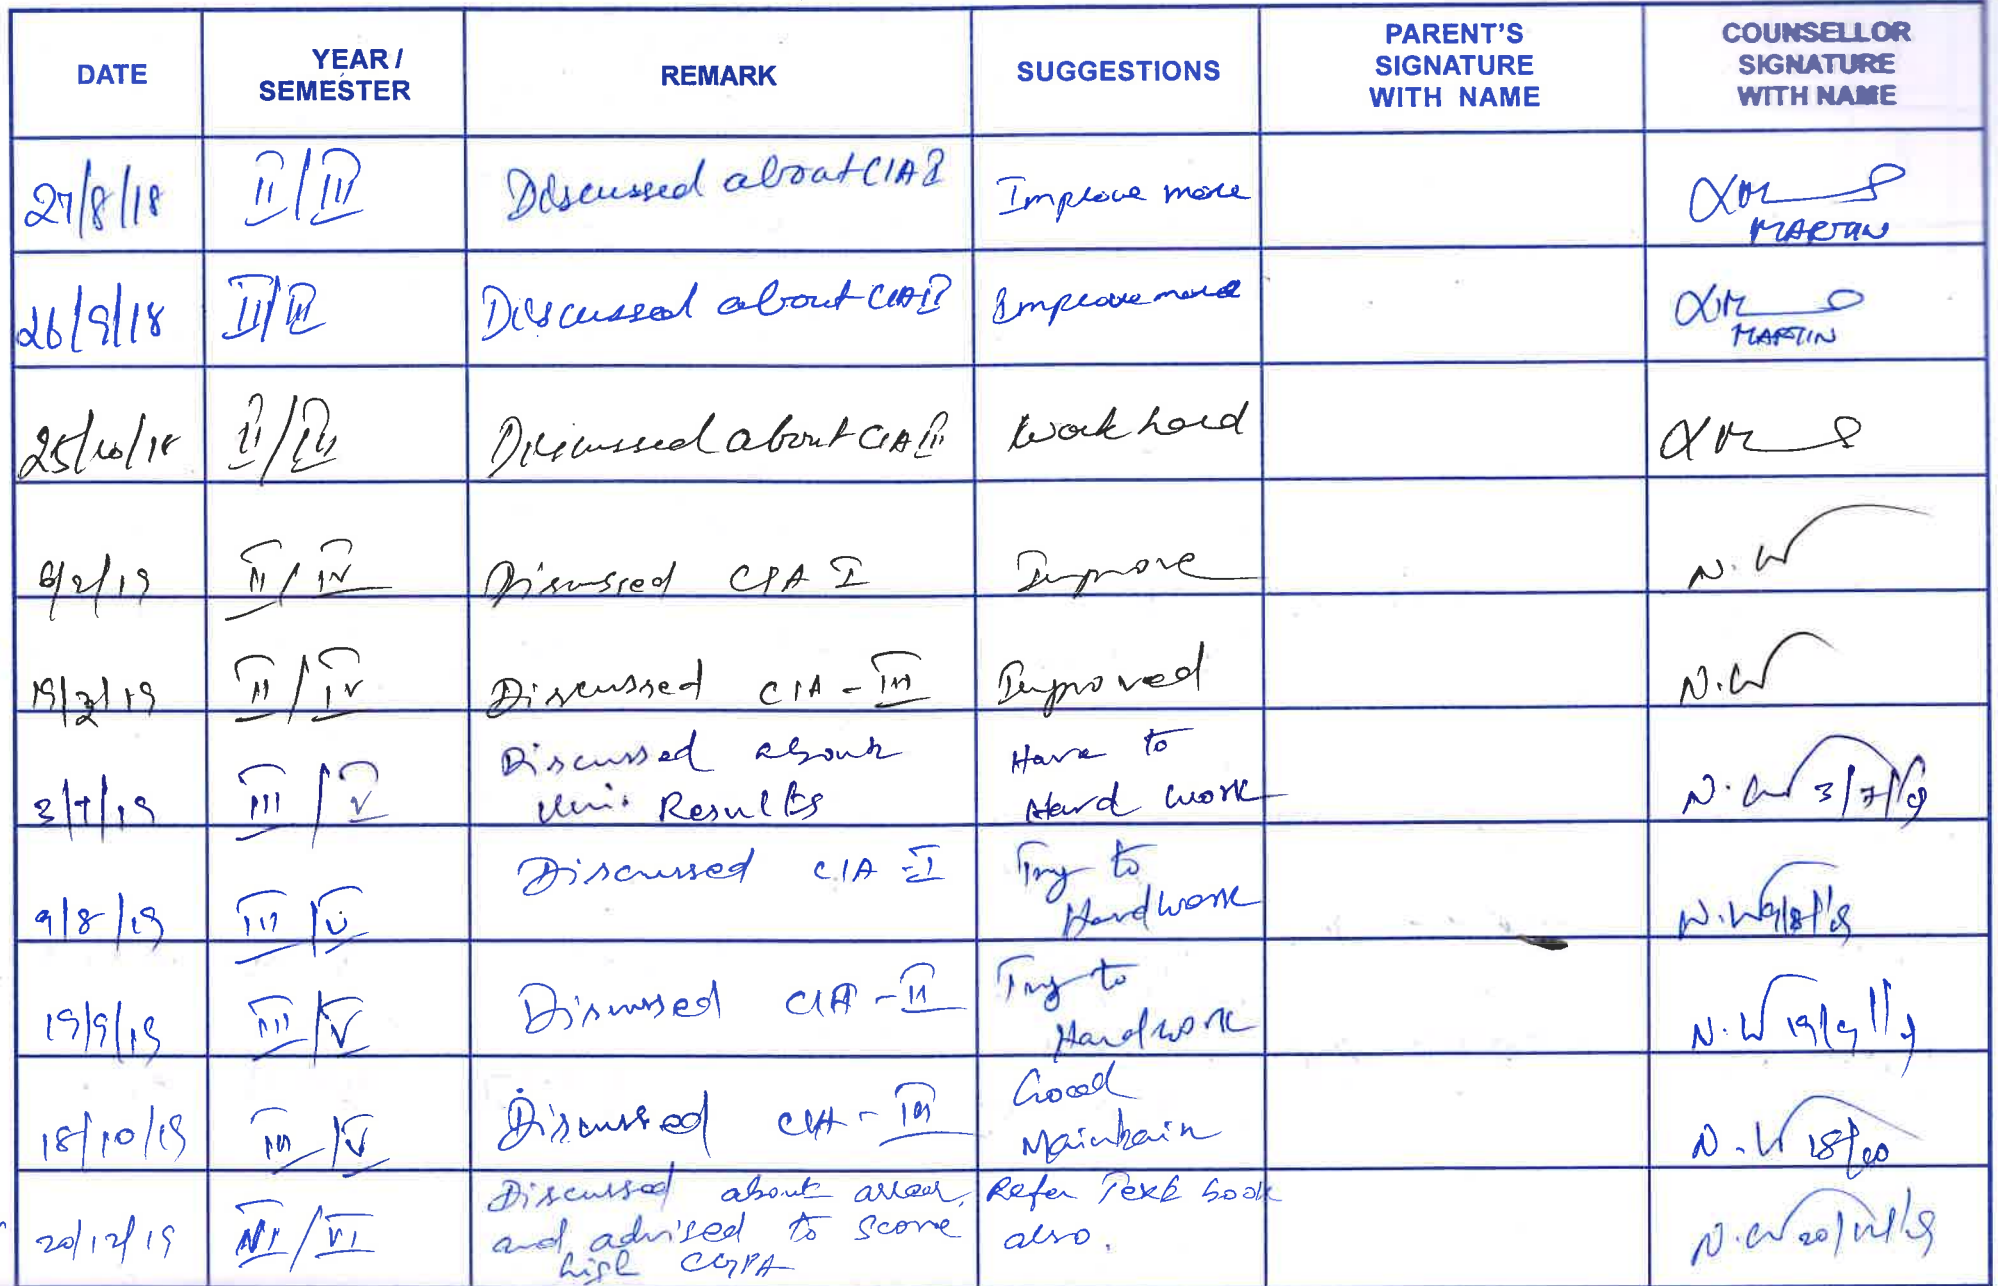 DATE YEAR / SEMESTER REMARK SUGGESTIONS PARENT'S SIGNATURE WITH NAME COUNSELLOR SIGNATURE WITH NAME
27/8/18 II/III Discussed about CIA I Improve more MARTIN
26/9/18 II/III Discussed about CIA II Improve more MARTIN
25/10/18 II/III Discussed about CIA III Work hard
6/2/19 II/IV Discussed CIA I Improve N.
19/3/19 II/IV Discussed CIA - III Improved N.
3/7/19 III/V Discussed about Uni. Results Have to Hard work N. 3/7/19
9/8/19 III/V Discussed CIA - I Try to Hard work N. 9/8/19
19/9/19 III/V Discussed CIA - II Try to Hard work N. 19/9/19
18/10/19 III/V Discussed CIA - III Good Maintain N. 18/10
20/12/19 /VI Discussed about arrear, and advised to score high CGPA Refer Text book also. N. 20/12/19